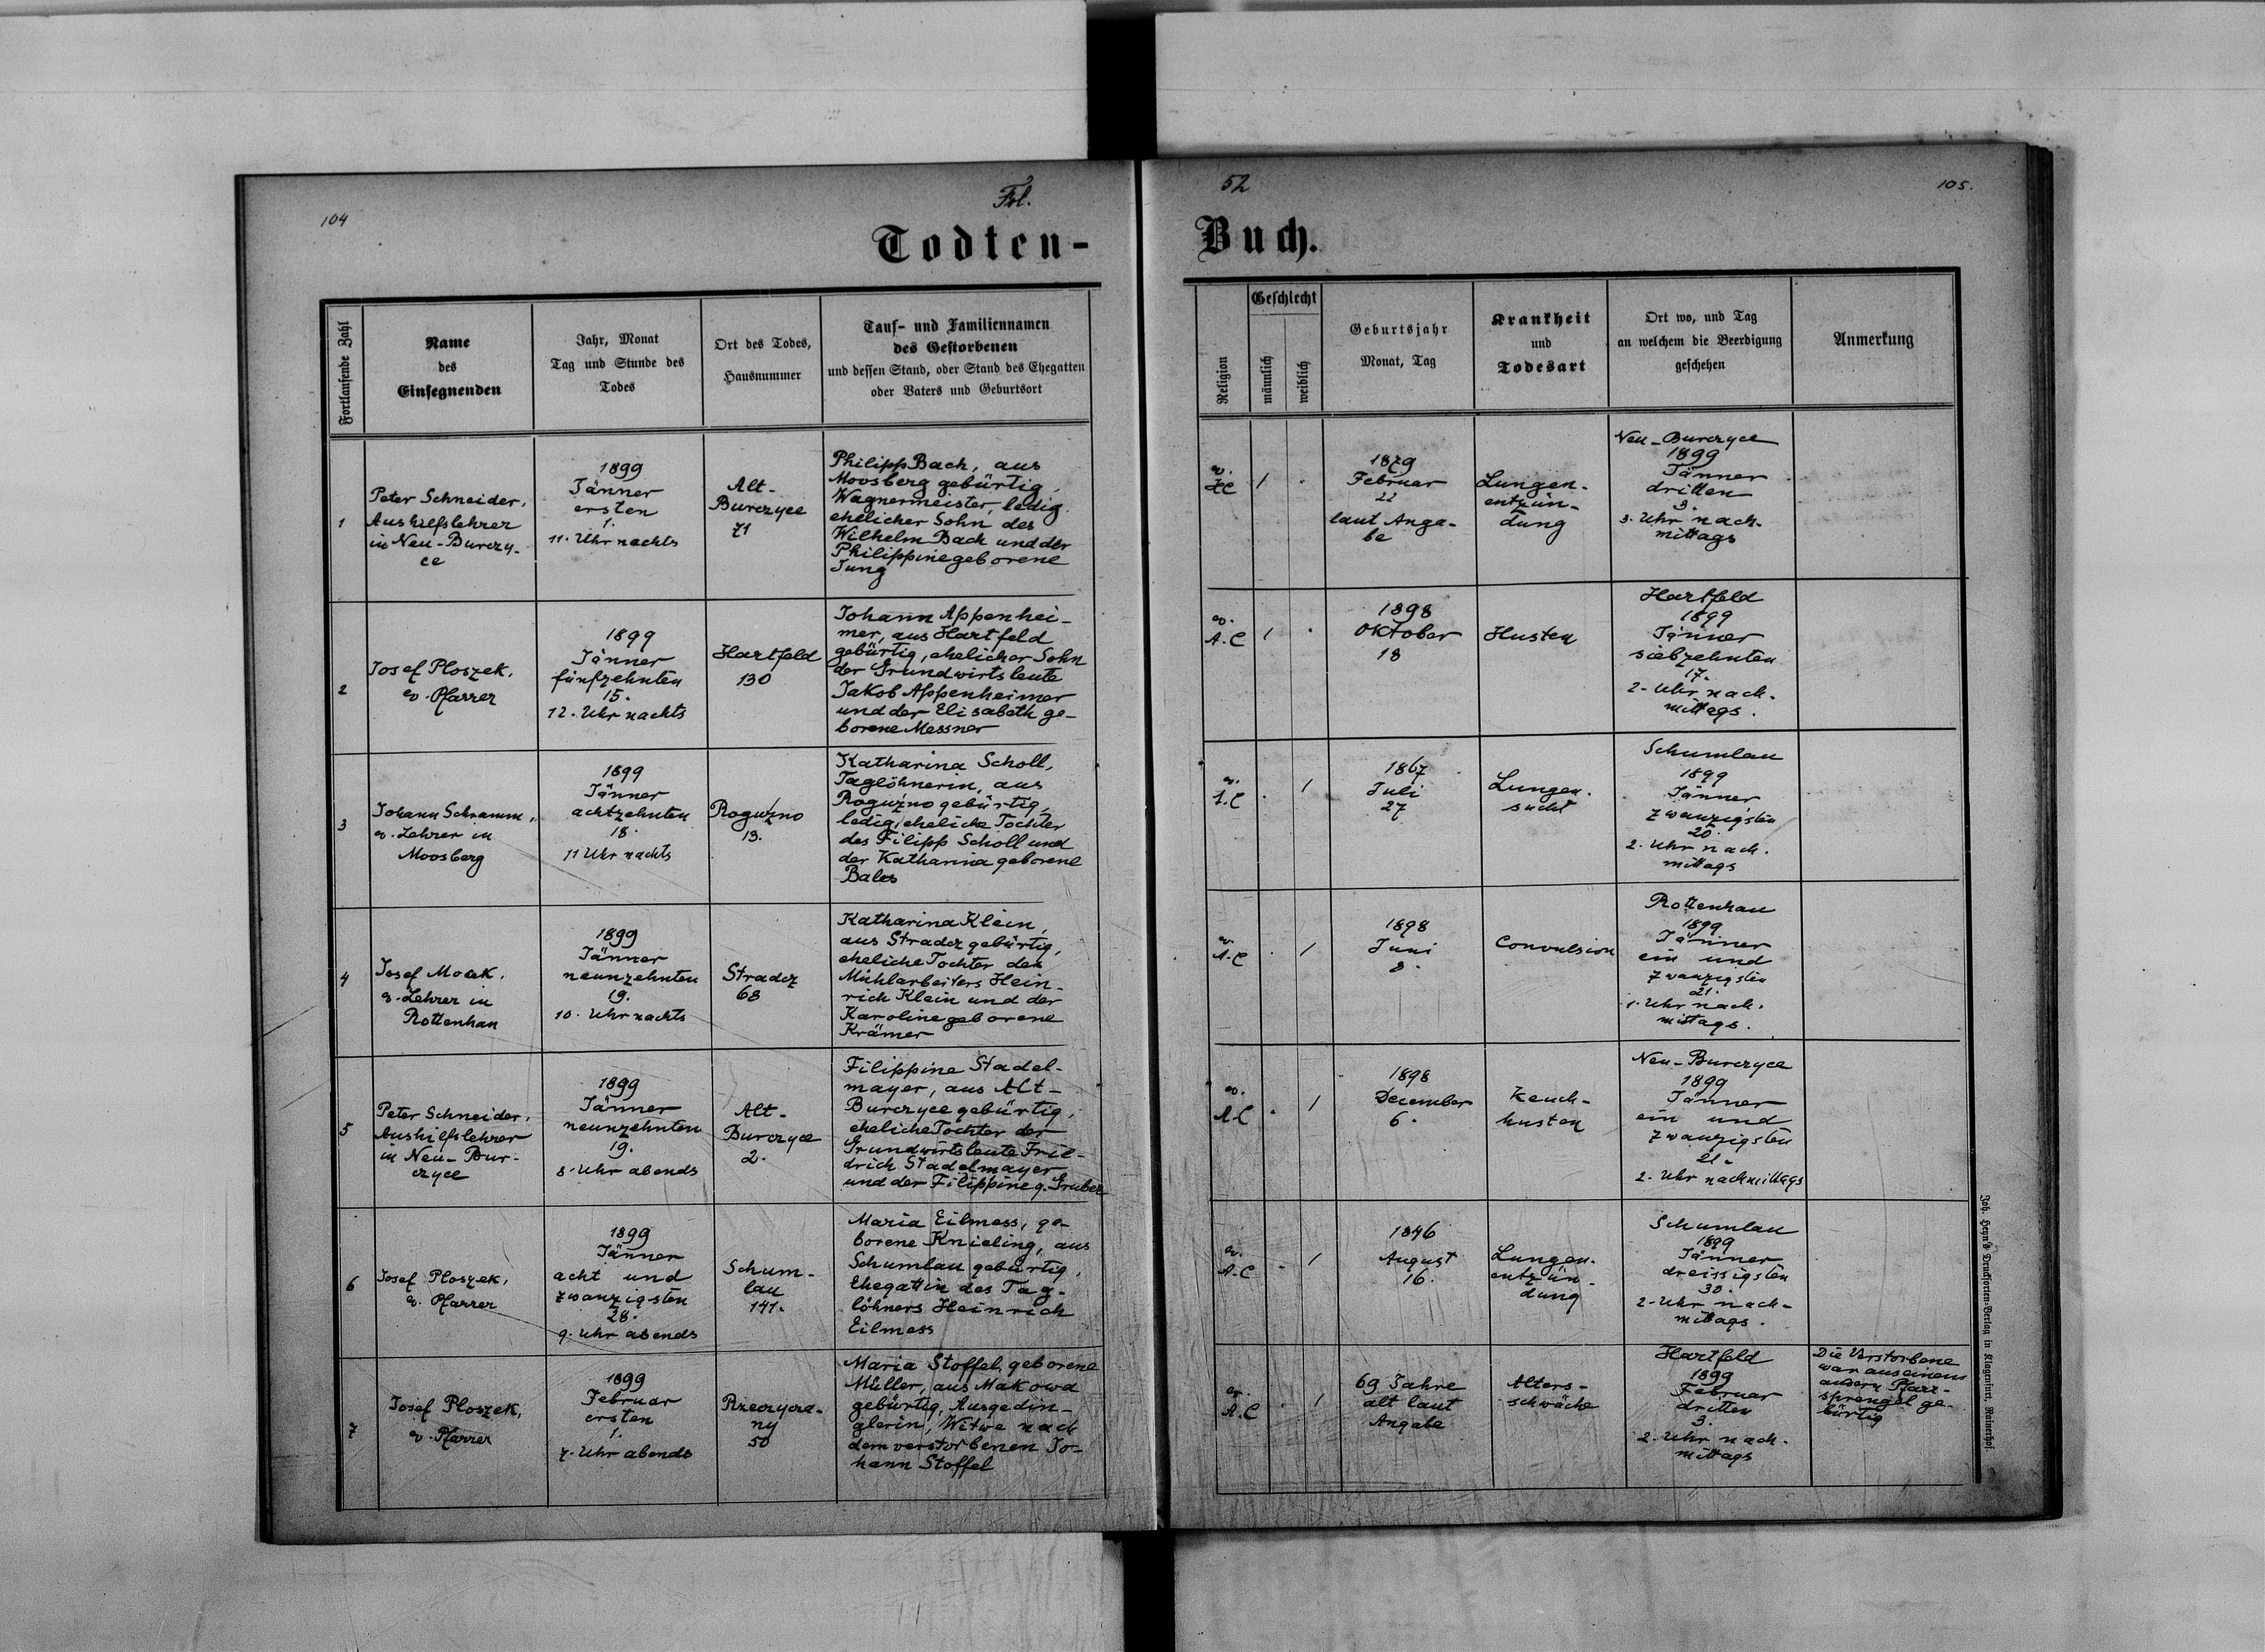 104
Fol.
52
105.
Todten-
Buch.
Fortlaufende Zahl
Name
des
Einsegnenden
Jahr, Monat
Tag und Stunde des
Todes
Ort des Todes,
Hausnummer
Tauf- und Familiennamen
des Gestorbenen
und dessen Stand, oder Stand des Ehegatten
oder Vaters und Geburtsort
Religion
Geschlecht
männlich
weiblich
Geburtsjahr
Monat, Tag
Krankheit
und
Todesart
Ort wo, und Tag
an welchem die Beerdigung
geschehen
Anmerkung
1
Peter Schneider,
Aushilfslehrer
in Neu-Burczy-
ce
1899
Jänner
ersten
1.
11. Uhr nachts
Alt-
Burczyce
71
Philipp Bach, aus
Moosberg gebürtig,
Wagnermeister, ledig
ehelicher Sohn des
Wilhelm Bach und der
Philippine geborene
Jung
ev.
HC
/ .
1879
Februar
22
laut Anga-
be
Lungen-
entzün-
dung
Neu-Burczyce
1899
Jänner
dritten
3.
3. Uhr nach-
mittags
2
Josef Ploszek,
ev. Pfarrer
1899
Jänner
fünfzehnten
15.
12. Uhr nachts
Hartfeld
130
Johann Appenhei-
mer, aus Hartfeld
gebürtig, ehelicher Sohn
der Grundwirtsleute
Jakob Appenheimer
und der Elisabeth ge-
borene Messner
ev.
A.C
/ .
1898
Oktober
18
Husten
Hartfeld
1899
Jänner
siebzehnten
17.
2. Uhr nach-
mittags.
3
Johann Schramm,
ev. Lehrer in
Moosberg
1899
Jänner
achtzehnten
18.
11 Uhr nachts
Roguźno
13.
Katharina Scholl,
Taglöhnerin, aus
Roguźno gebürtig,
ledig, eheliche Tochter
des Filipp Scholl und
der Katharina geborene
Bales
ev.
A.C
. /
1867
Juli
27
Lungen-
sucht
Schumlau
1899
Jänner
zwanzigsten
20.
2. Uhr nach-
mittags
4
Josef Mock,
ev. Lehrer in
Rottenhan
1899
Jänner
neunzehnten
19.
10. Uhr nachts
Stradcz
68
Katharina Klein,
aus Stradcz gebürtig,
eheliche Tochter des
Mühlarbeiters Hein-
rich Klein und der
Karoline geborene
Krämer
ev.
A.C
. /
1898
Juni
8.
Convulsion
Rottenhan
1899
Jänner
ein und
zwanzigsten
21.
1. Uhr nach-
mittags.
5
Peter Schneider,
Aushilfslehrer
in Neu-Bur-
czyce
1899
Jänner
neunzehnten
19.
8. Uhr abends
Alt-
Burczyce
2.
Filippine Stadel-
mayer, aus Alt-
Burczyce gebürtig,
eheliche Tochter der
Grundwirtsleute Frie-
drich Stadelmayer
und der Filippine g. Gruber
ev.
A.C
. /
1898
December
6.
Keuch-
husten
Neu-Burczyce
1899
Jänner
ein und
zwanzigsten
21.
2. Uhr nachmittags
6
Josef Ploszek,
ev. Pfarrer
1899
Jänner
acht und
zwanzigsten
28.
9. Uhr abends
Schum-
lau
141.
Maria Eilmess, ge-
borene Knieling, aus
Schumlau gebürtig,
Ehegattin des Tag-
löhners Heinrich
Eilmess
ev.
A.C
. /
1846
August
16.
Lungen-
entzün-
dung
Schumlau
1899
Jänner
dreissigsten
30.
2. Uhr nach-
mittags.
7
Josef Ploszek,
ev. Pfarrer
1899
Februar
ersten
1.
7. Uhr abends
Rzeczycza-
ny
50
Maria Stoffel, geborene
Müller, aus Makowa
gebürtig, Ausgedin-
glerin, Witwe nach
dem verstorbenen Jo-
hann Stoffel
ev.
A.C
. /
69 Jahre
alt laut
Angabe
Alters-
schwäche
Hartfeld
1899
Februar
dritten
3.
2. Uhr nach-
mittags
Die Verstorbene
war aus einem
andern Pfarr-
sprengel ge-
bürtig
Joh. Heyn's Drucksorten-Verlag in Klagenfurt, Rainerhof.